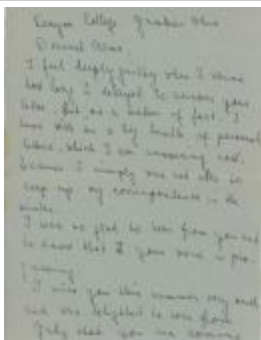 Kenyon College Gambier Ohio
Dearest
I feel deeply guilty when I
how long I delayed to answer your
letter. But as a matter of fact, I
have with me a big bundle of personal
letters, which I am answering now,
because I simply was not able to
keep up my correspondence in the

I was so glad to hear from you and
to know that your
I miss you this summer very much
and was delighted to hear from
that you are coming